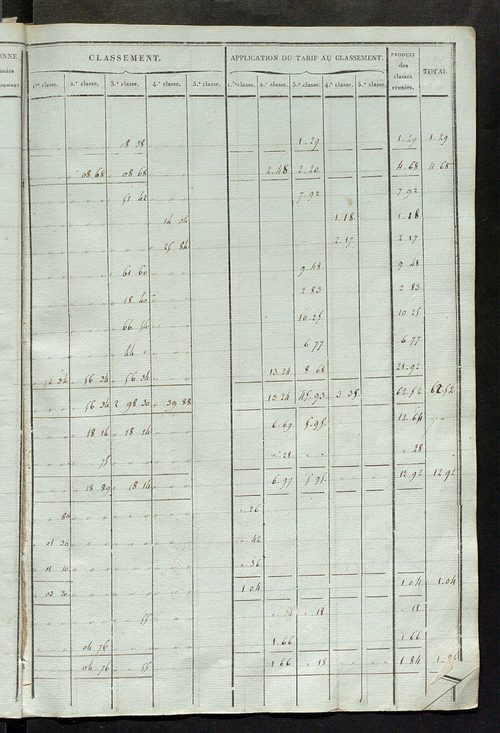 CLASSEMENT. APPLICATION DU TARIF AU CLASSEMENT. PRODUIT des classes réunies. TOTAL
1.re classe. 2.e classe. 3.e classe. 4.e classe. 5.e classe. 1.re classe. 2.e classe. 3.e classe. 4.e classe. 5.e classe.
1.29 1.29 1.29
08 68 08 68 2.48 2.20 4.68 4.68
51 42 7.92 7.92
1.18 1.18
25 84 2.17 2.17
61 60 9.48 9.48
18 40 2.83 2.83
66 54 10.25 10.25
44 6.77 6.77
56 34 56 34 56 34 13.24 8.68 21.92
56 34 2 98 30 39 88 13.24 45.93 3.35 62.52 62.52
18 14 18 14 6.69 5.95 12.64
75 28 28
18 89 18 14 6.97 5.95 12.92 12.92
80 26
01 30 42
01 10 36
03 20 1.04 1.04 1.04
55 14 18 18
04 76 1.66 1.66
04 76 55 1.66 18 1.84